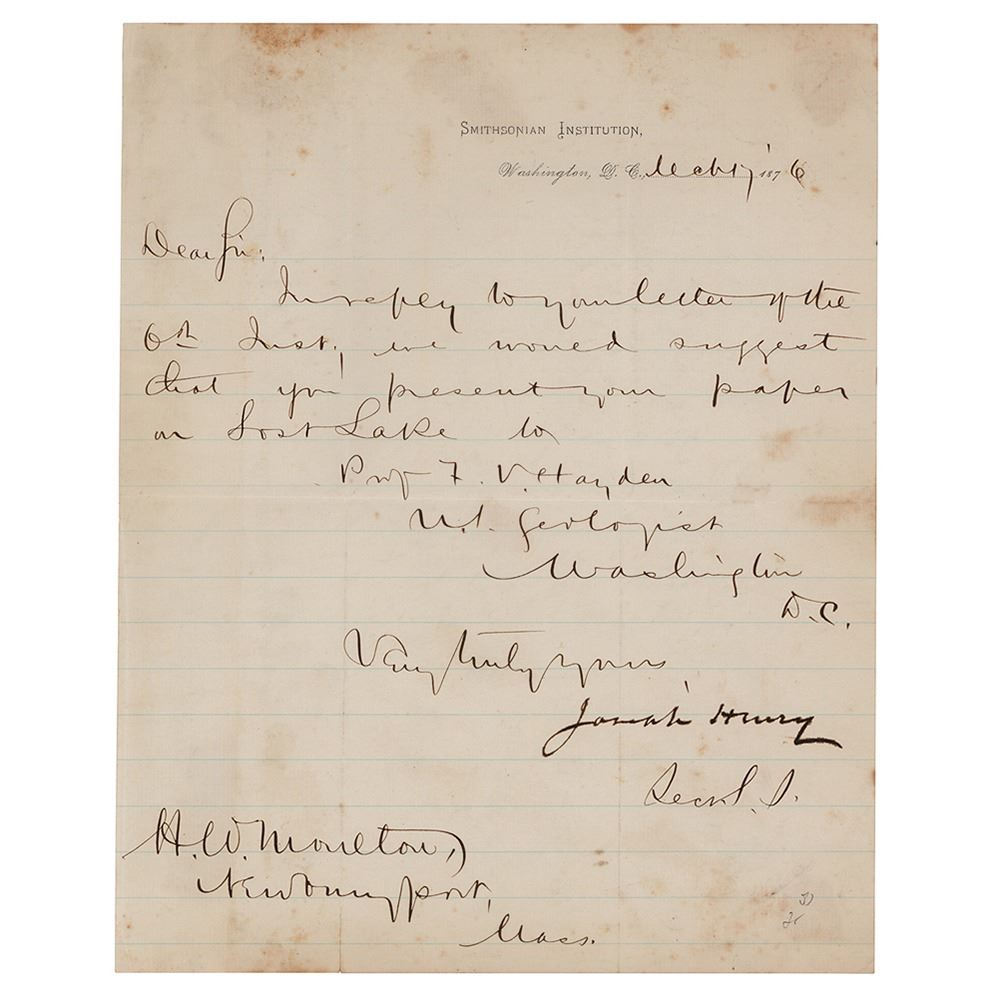 SMITHSONIAN INSTITUTION,
Washington, D. C., Mch 17, 1876
Dear Sir:
In reply to your letter of the
6th Inst., we would suggest
that you present your paper
on Lost Lake to
Prof F. V. Hayden
U.S. Geologist
Washington
D.C.
Very truly yours
Joseph Henry
Sec S. I.
H. W. Moulton,
Newburyport,
Mass.